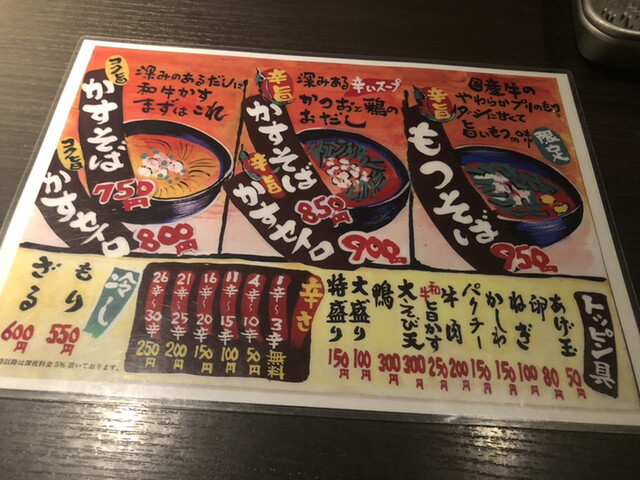 コク旨
かすそば
深みのあるだしに
和牛かす
まずはこれ
750円
コク旨
800円
辛旨
かすそば
深みある辛いスープ
かつおと鶏の
おだし
850円
辛旨
900円
辛旨
もつそば
国産牛の
旨いもつの味
限定
950円
冷し
もり
550円
ざる
600円
辛さ
1辛~3辛
無料
4辛~10辛
50円
11辛~15辛
100円
16辛~20辛
150円
21辛~25辛
200円
26辛~30辛
250円
トッピン具
あげ玉
50円
卵
80円
ねぎ
100円
かしわ
150円
パクチー
150円
牛肉
200円
和牛旨かす
250円
大えび天
300円
鴨
300円
大盛り
100円
特盛り
150円
時以降は深夜料金5%頂いております。